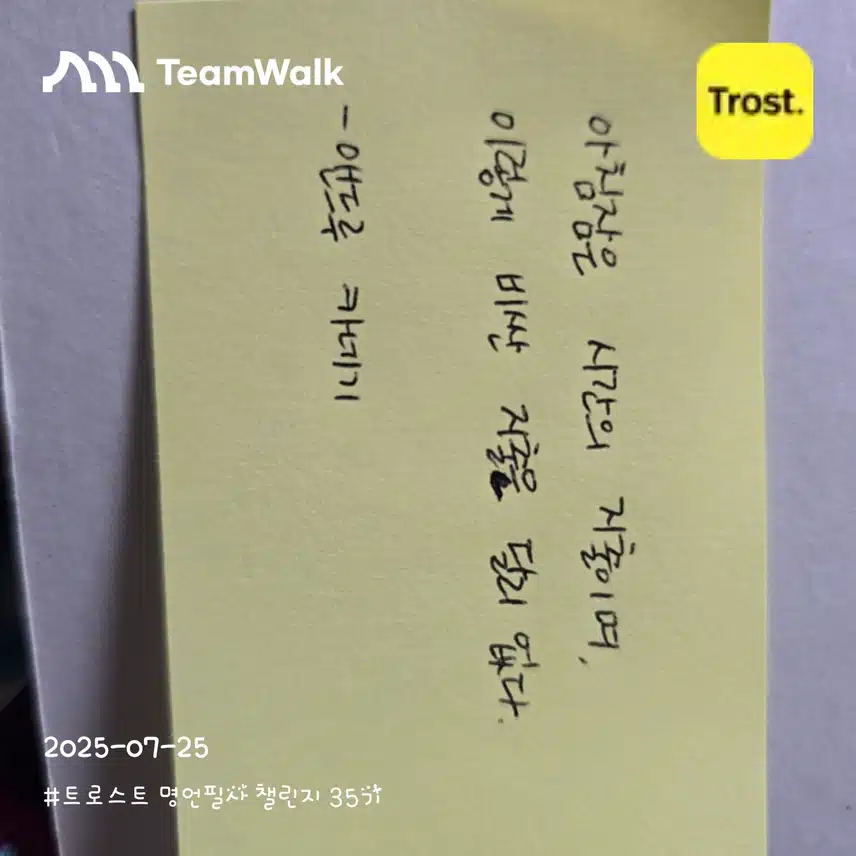 TeamWalk
Trost.
아침잠은 시간의 지출이며,
이렇게 비싼 지출은 달리 없다.
- 앤드류 카네기
2025-07-25
#트로스트 명언필사 챌린지 35차